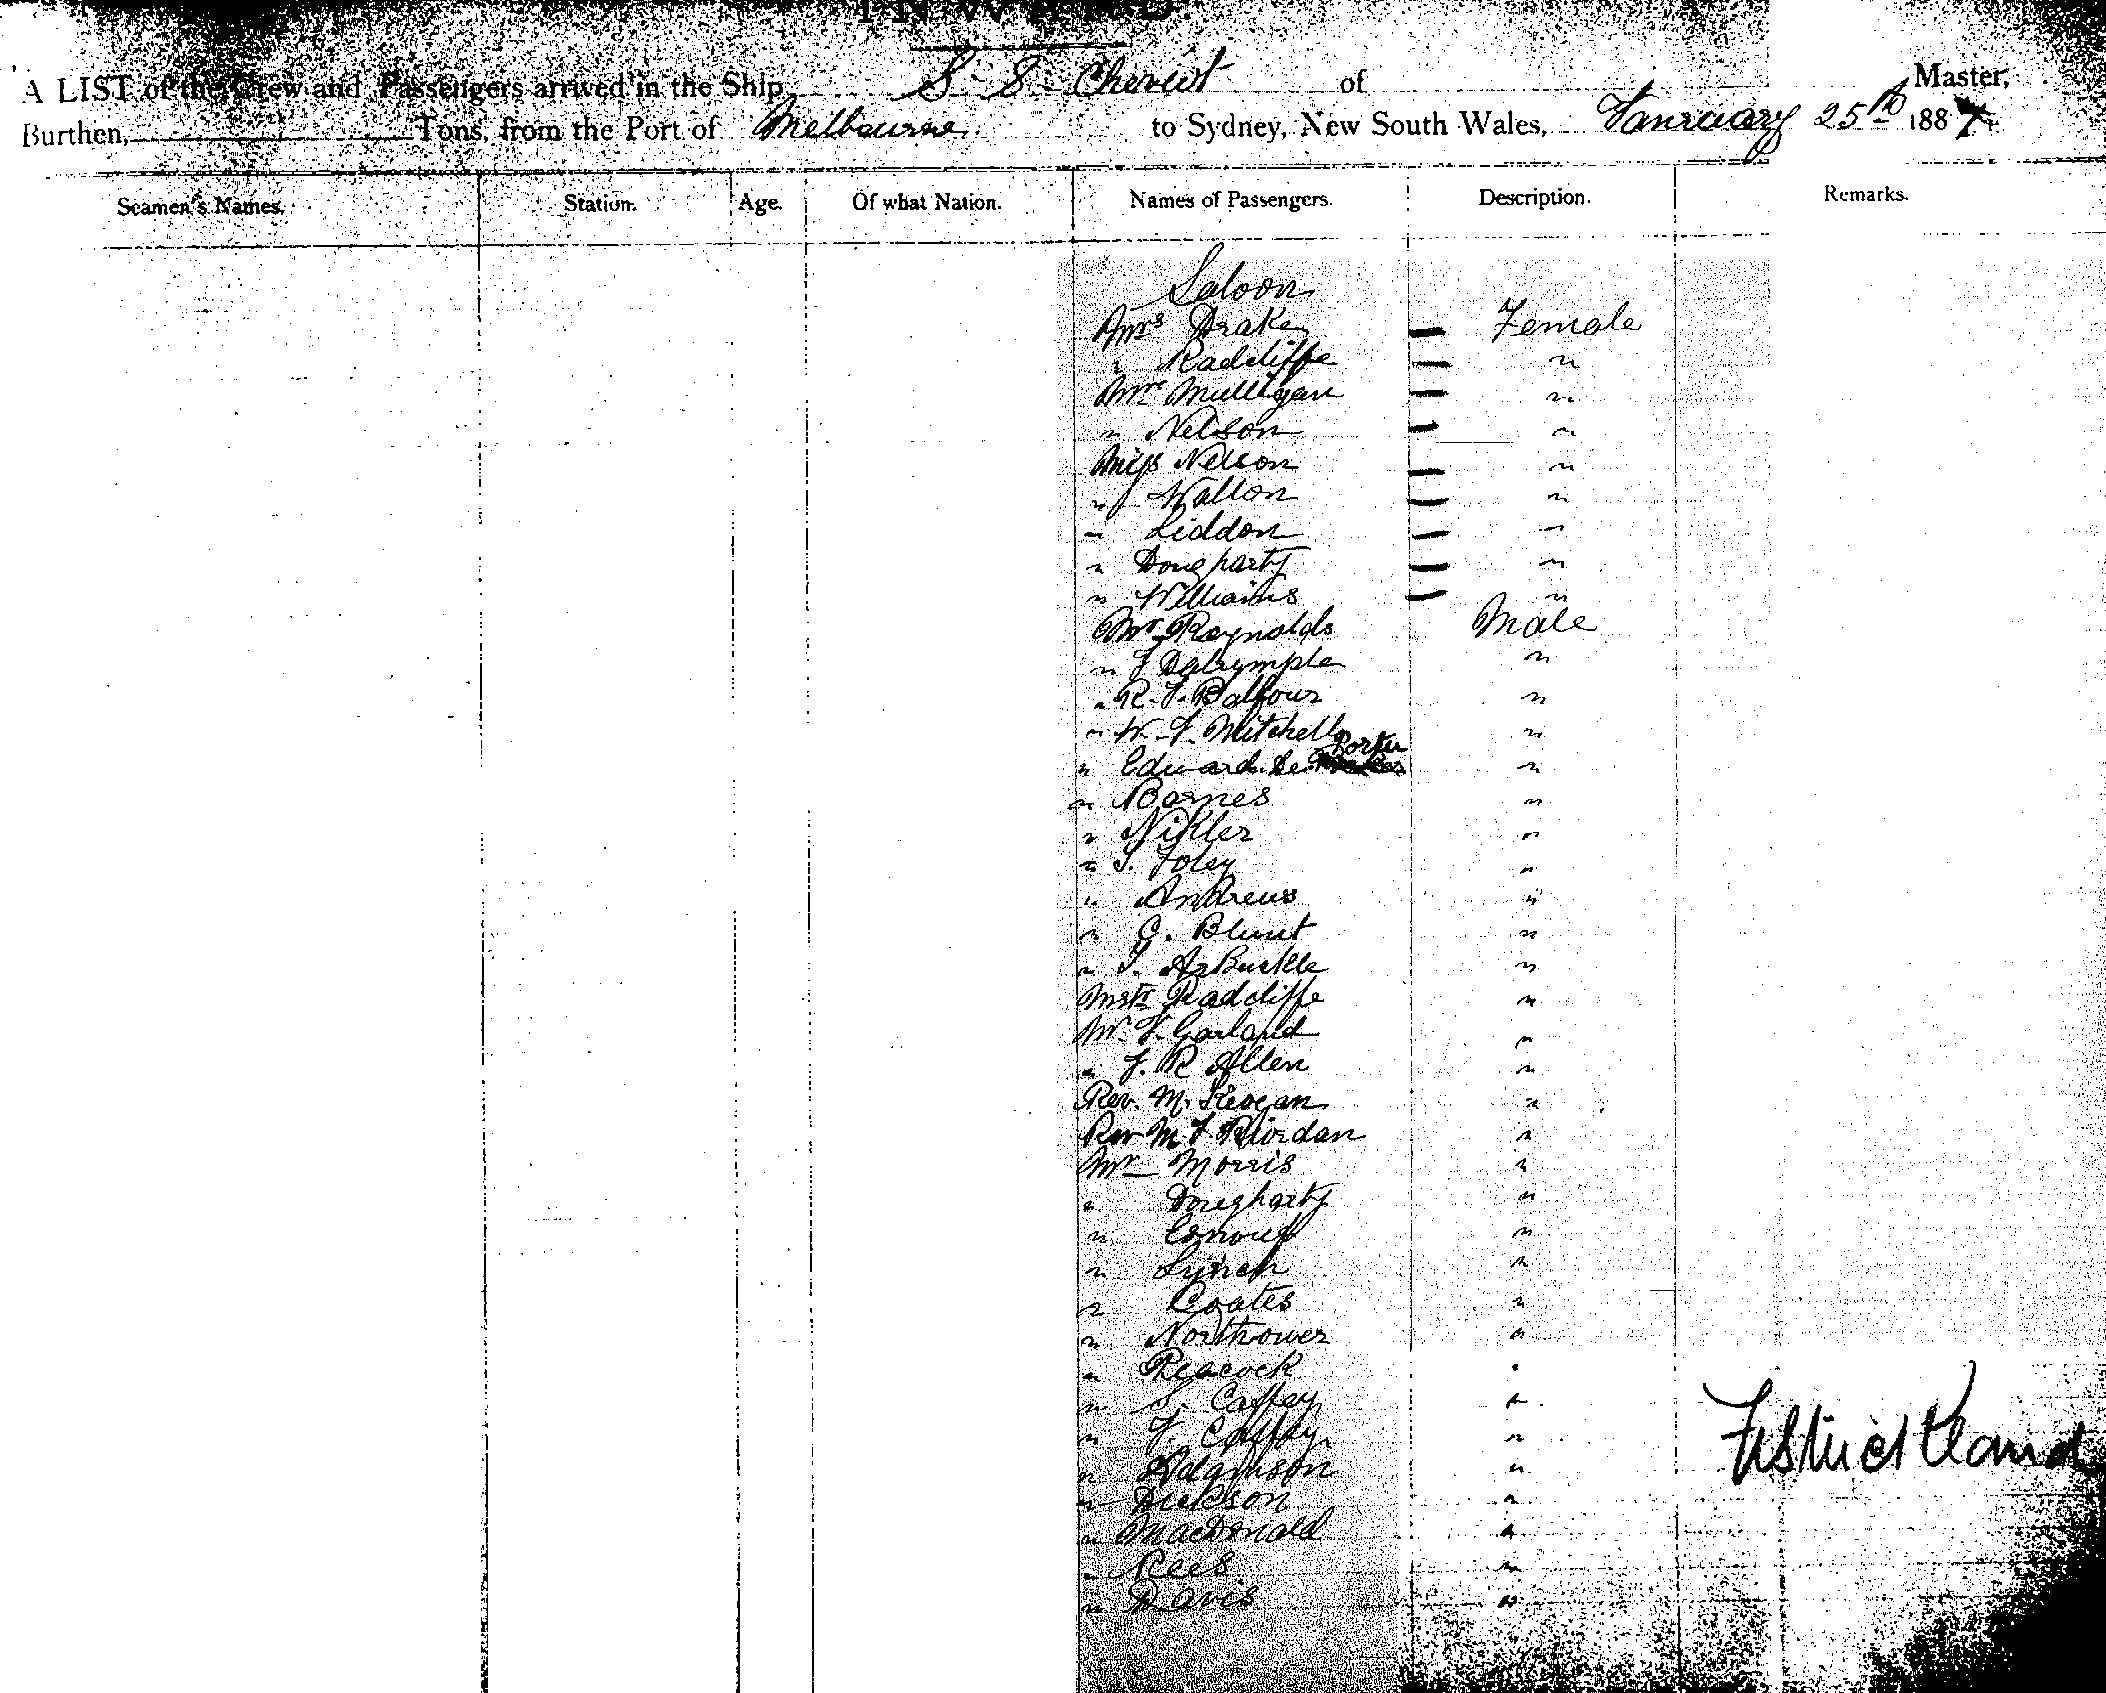 INWARD.
A LIST of the Crew and Passengers arrived in the Ship S. S. Cheviot of Master,
Burthen, Tons, from the Port of Melbourne to Sydney, New South Wales, January 25th 1887
Seamen's Names. Station. Age. Of what Nation. Names of Passengers. Description. Remarks.
Saloon
Mrs Drake Female
" Radcliffe "
Mrs Mulligan "
" Nelson "
Miss Nelson "
" Wallon "
" Liddon "
" Dougharty "
" Williams "
Mr Reynolds Male
" J Dalrymple "
" R. J. Balfour "
" W. F. Mitchell "
Porter
" Edward "
" Barnes "
" Nikler "
" T. Foley "
" Andrews "
" G. Blunt "
" T. ArBuckle "
Mstr Radcliffe "
Mr. F. Garland "
" J. R Allen "
Rev. M. Keogan "
Rev M J Riordan "
Mr Morris "
" Dougharty "
" "
" Lynch "
" Coates "
" Northower "
" Peacock "
" S. Caffey "
" J. Caffey "
" Adamson "
" Dickson "
" MacDonald "
" Rees "
" Davis "